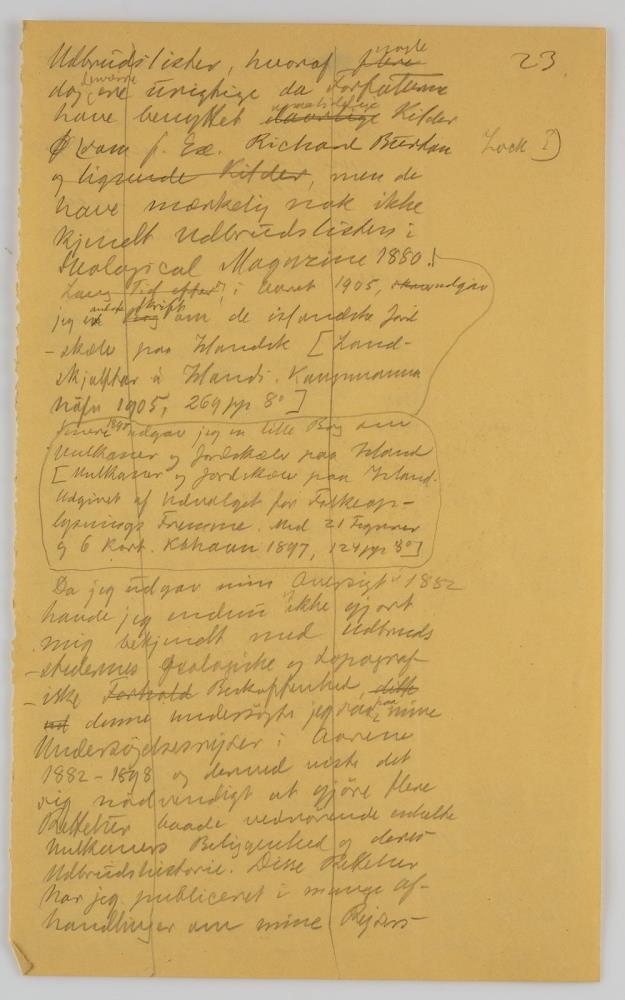 23.
Udbrudslister, hvoraf flere nogle
dog desværre ere urigtige da Forfatterne
have benyttet daarlige Kilder
(som f. Ex. Richard Burton Lock)
og lignende Kilder, men de
have mærkelig nok ikke
kjendt Udbrudslisten i
Geological Magazine 1880!
Lang Tid efter, i Aaret 1905, udgav
jeg et andet Skrift Bog om de islandske Jord
-skælv paa Islandsk [Land-
skjálftar á Íslandi. Kaupmanna
höfn 1905, 269 pp 8°]
1897 udgav jeg en lille Bog om
Vulkaner og Jordskælv paa Island
[Vulkaner og Jordskælv paa Island.
Udgivet af Udvalget for Folkeop-
lysnings Fremme. Med 21 Figurer
og 6 Kort. Kbhavn 1897, 124 pp 8°]
Da jeg udgav min Oversigt i 1882
havde jeg endnu ikke gjort
mig bekjendt med Udbruds
-stedernes geologiske og topograf-
-iske Forhold Beskaffenhed, dette
denne undersøgte jeg paa mine
Undersøgelsesrejser i Aarene
1882-1898 og derved viste det
sig nødvendigt at gjöre flere
Rettelser baade vedrørende enkelte
Vulkaners Beliggenhed og deres
Udbrudshistorie. Disse Rettelser
har jeg publiceret i mange af-
handlinger om mine Rejser